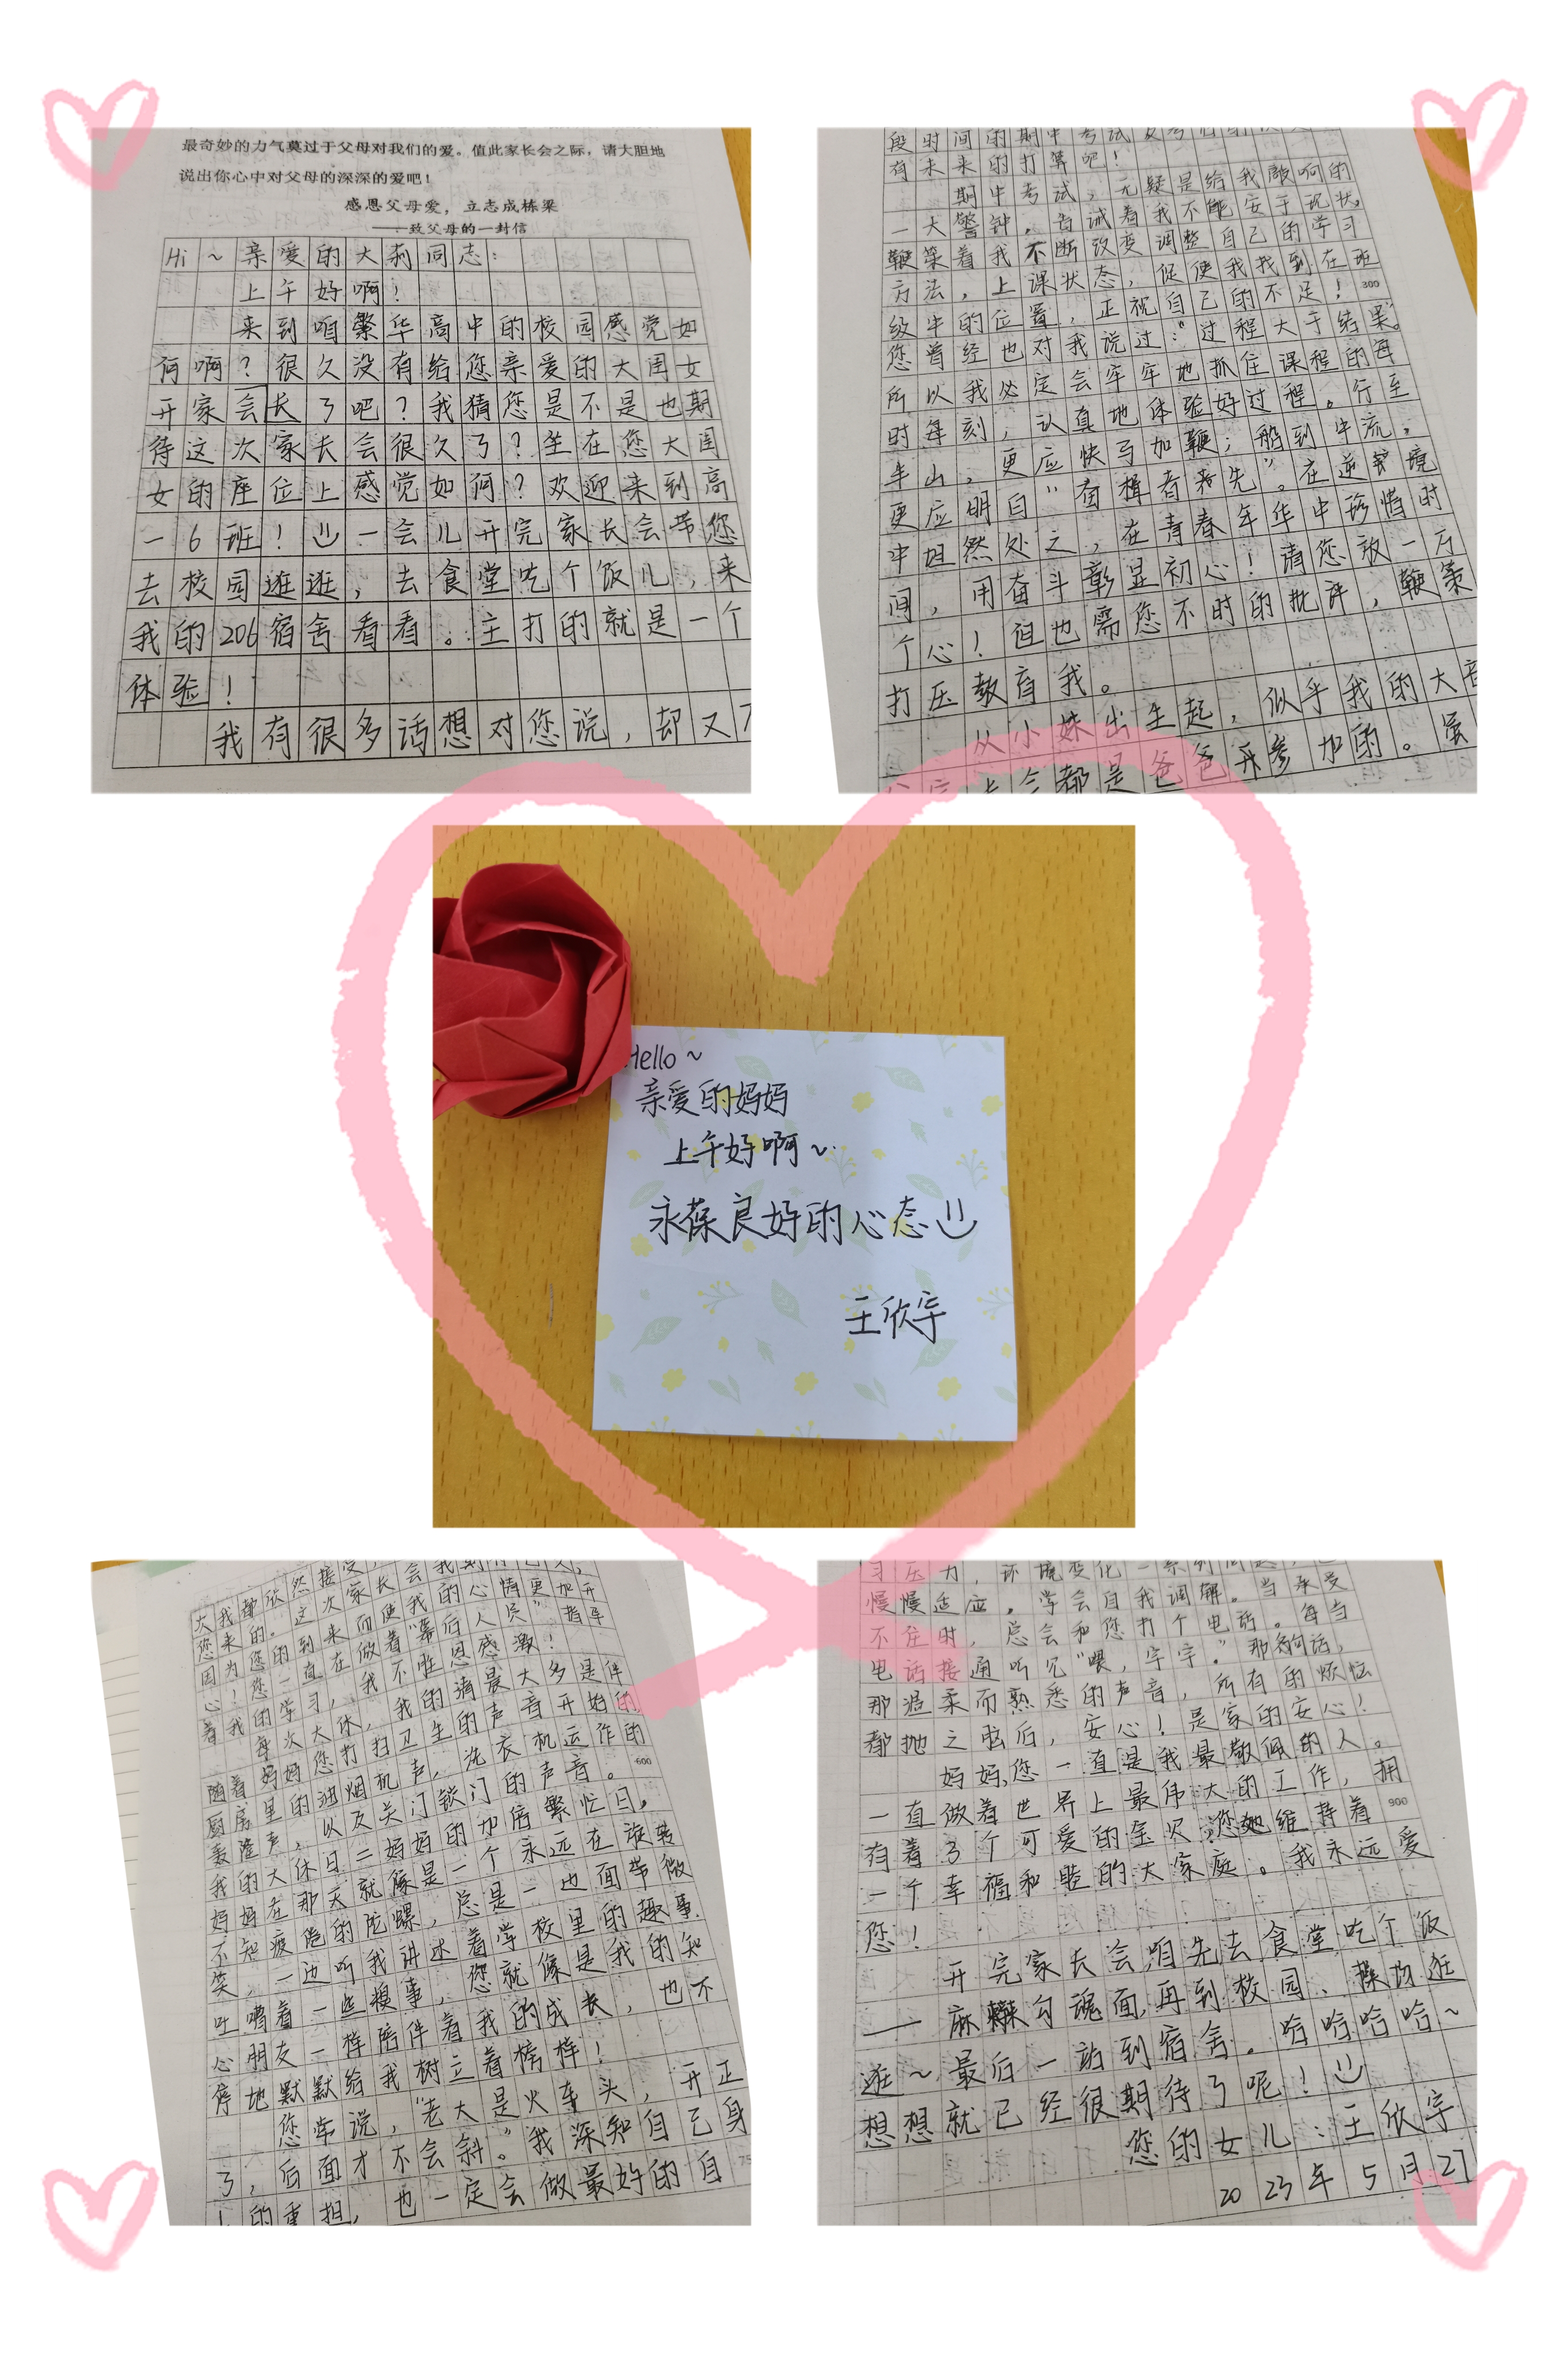 最奇妙的力气莫过于父母对我们的爱。值此家长会之际,请大胆地
说出你心中对父母的深深的爱吧!
感恩父母爱,立志成栋梁
——致父母的一封信
Hi~亲爱的大莉同志:
上午好啊!
来到咱繁华高中的校园感觉如
何啊?很久没有给您亲爱的大闺女
开家会长了吧?我猜您是不是也期
待这次家长会很久了?坐在您大闺
女的座位上感觉如何?欢迎来到高
一6班!一会儿开完家长会带您
去校园逛逛,去食堂吃个饭儿,来
我的206宿舍看看。主打的就是一个
体验!
我有很多话想对您说,却又
段时间的期中考试
有未来的打算吧!
期中考试,无疑是给我敲响的
一大警钟,告诫着我不能安于现状,
鞭策着我不断改变调整自己的学习
方法,上课状态,促使我找到在班
300
级中的位置,正视自己的不足!
您曾经也对我说过:“过程大于结果。”
所以我必定会牢牢地抓住课程的每
时每刻,认真地体验好过程。行至
半山,更应快马加鞭;船到中流,
更应明白“奋楫者先”。在逆境
中坦然处之,在青春年华中珍惜时
间,用奋斗彰显初心!请您放一万
个心!但也需您不时的批评,鞭策
打压教育我。
从小妹出生起,似乎我的大
家长会都是爸爸开参加的。虽
Hello~
亲爱的妈妈
上午好啊~
永葆良好的心态
王欣宇
大我都欣然接受,
您来的。这次家长会我期待已久,
因为您的到来而使我的心情更加开
心!您一直在做着“幕后人员”指导
着我的学习,我不胜感恩感激!
每次大休,我的清晨大多是伴
随着妈妈您打扫卫生的声音开始的,
厨房里的油烟机声,洗衣机运作的
600
轰隆声,以及关门锁门的声音。
我的大休日=妈妈的加倍繁忙日。
妈妈在那天就像是一个永远在旋转
不知疲倦的陀螺,总是一边面带微
笑,一边听我讲述着学校里的趣事,
吐嘈着一些糗事,您就像是我的知
心朋友一样陪伴着我的成长,也不
停地默默给我树立着榜样!
您常说,“老大是火车头,开正
了,后面才不会斜。”我深知自己身
的重担,也一定会做最好的自
习压力,环境变化一系列问题,
慢慢适应,学会自我调解。当承受
不住时,总会和您打个电话。每当
电话接通听见“喂,宇宇。”那句话,
那温柔而熟悉的声音,所有的烦恼
都抛之脑后,安心!是家的安心!
妈妈,您一直是我最敬佩的人。
一直做着世界上最伟大的工作,拥
有着3个可爱的金贝,您维持着
900
一个幸福和睦的大家庭。我永远爱
您!
开完家长会,咱先去食堂吃个饭
——麻辣勾魂面,再到校园、操场逛
逛~最后一站到宿舍。哈哈哈哈~
想想就已经很期待了呢!
您的女儿:王欣宇
2023年5月27